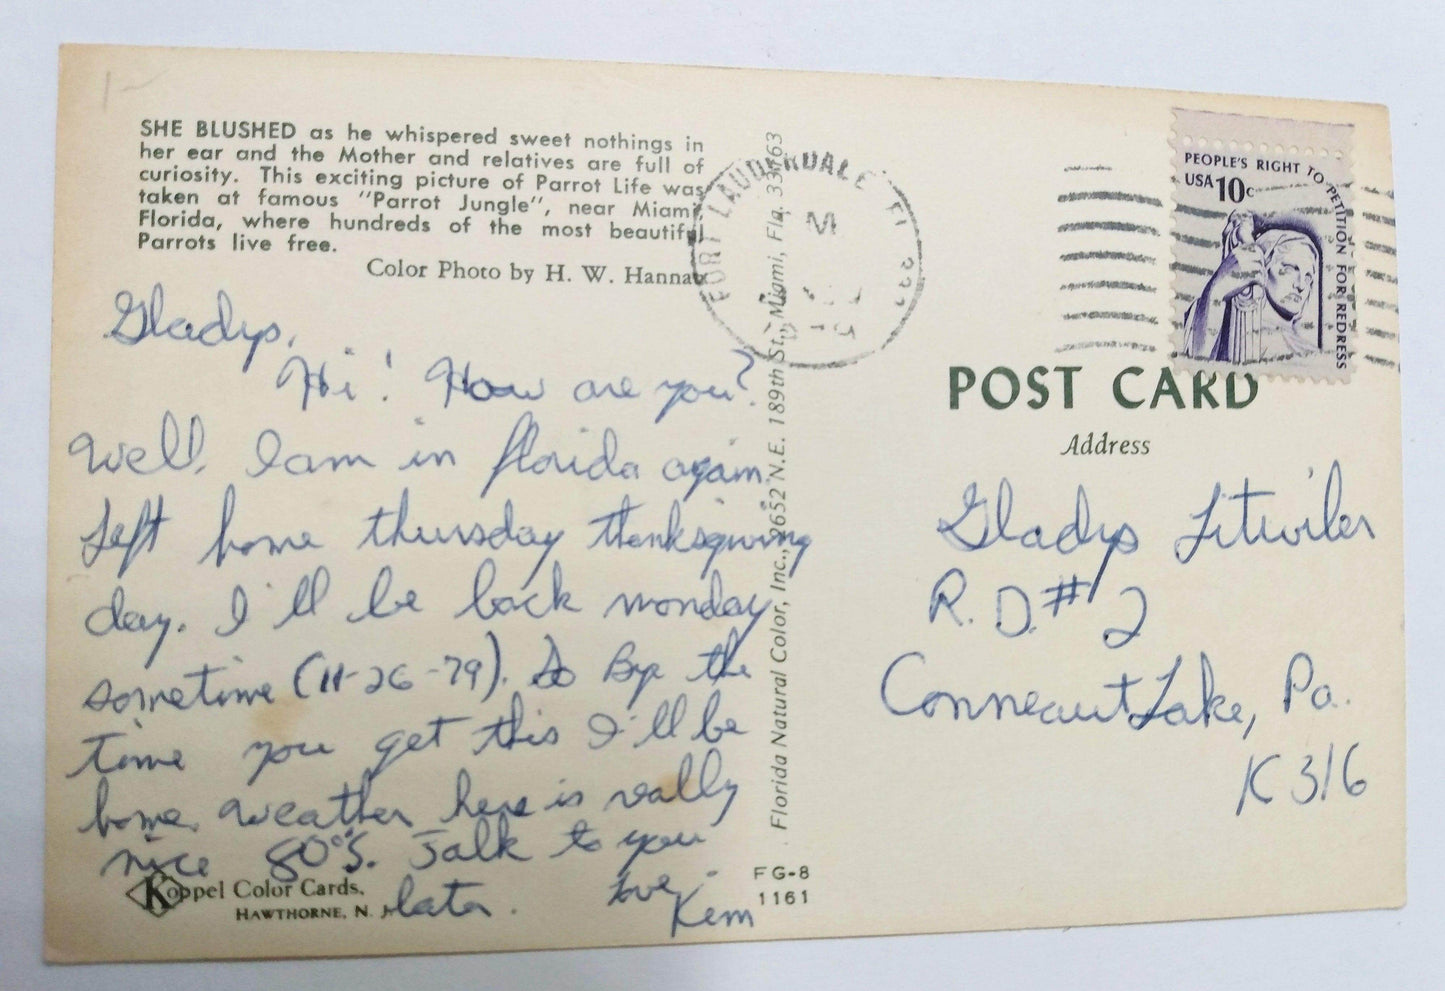 SHE BLUSHED as he whispered sweet nothings in
her ear and the Mother and relatives are full of
curiosity. This exciting picture of Parrot Life was
taken at famous "Parrot Jungle", near Miami,
Florida, where hundreds of the most beautiful
Parrots live free.
Color Photo by H. W. Hannau
Gladys,
Hi! How are you?
Well, I am in florida again.
Left home thursday thanksgiving
day. I'll be back monday
sometime (11-26-79). So Bye the
time you get this I'll be
home. Weather here is really
nice 80°'s. Talk to you
later. Love,
Kim
Koppel Color Cards.
HAWTHORNE, N. J.
Florida Natural Color, Inc., 2652 N.E. 189th St., Miami, Fla. 33163
FG-8
1161
FORT LAUDERDALE FL
PEOPLE'S RIGHT TO PETITION FOR REDRESS
USA 10c
POST CARD
Address
Gladys Litwiler
R. D. #2
Conneaut Lake, Pa.
K 316